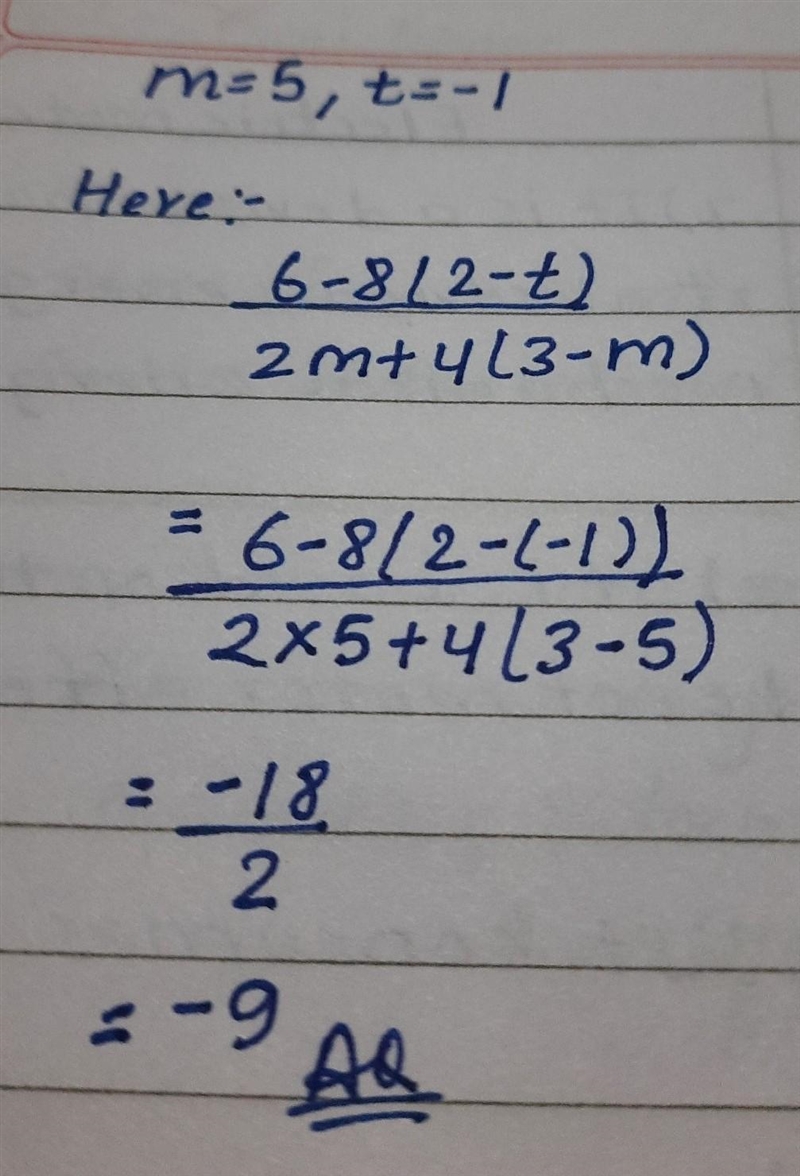 m=5, t=-1
Here:-
6-8(2-t)
2m+4(3-m)
= 6-8(2-(-1))
2×5+4(3-5)
= -18
2
= -9